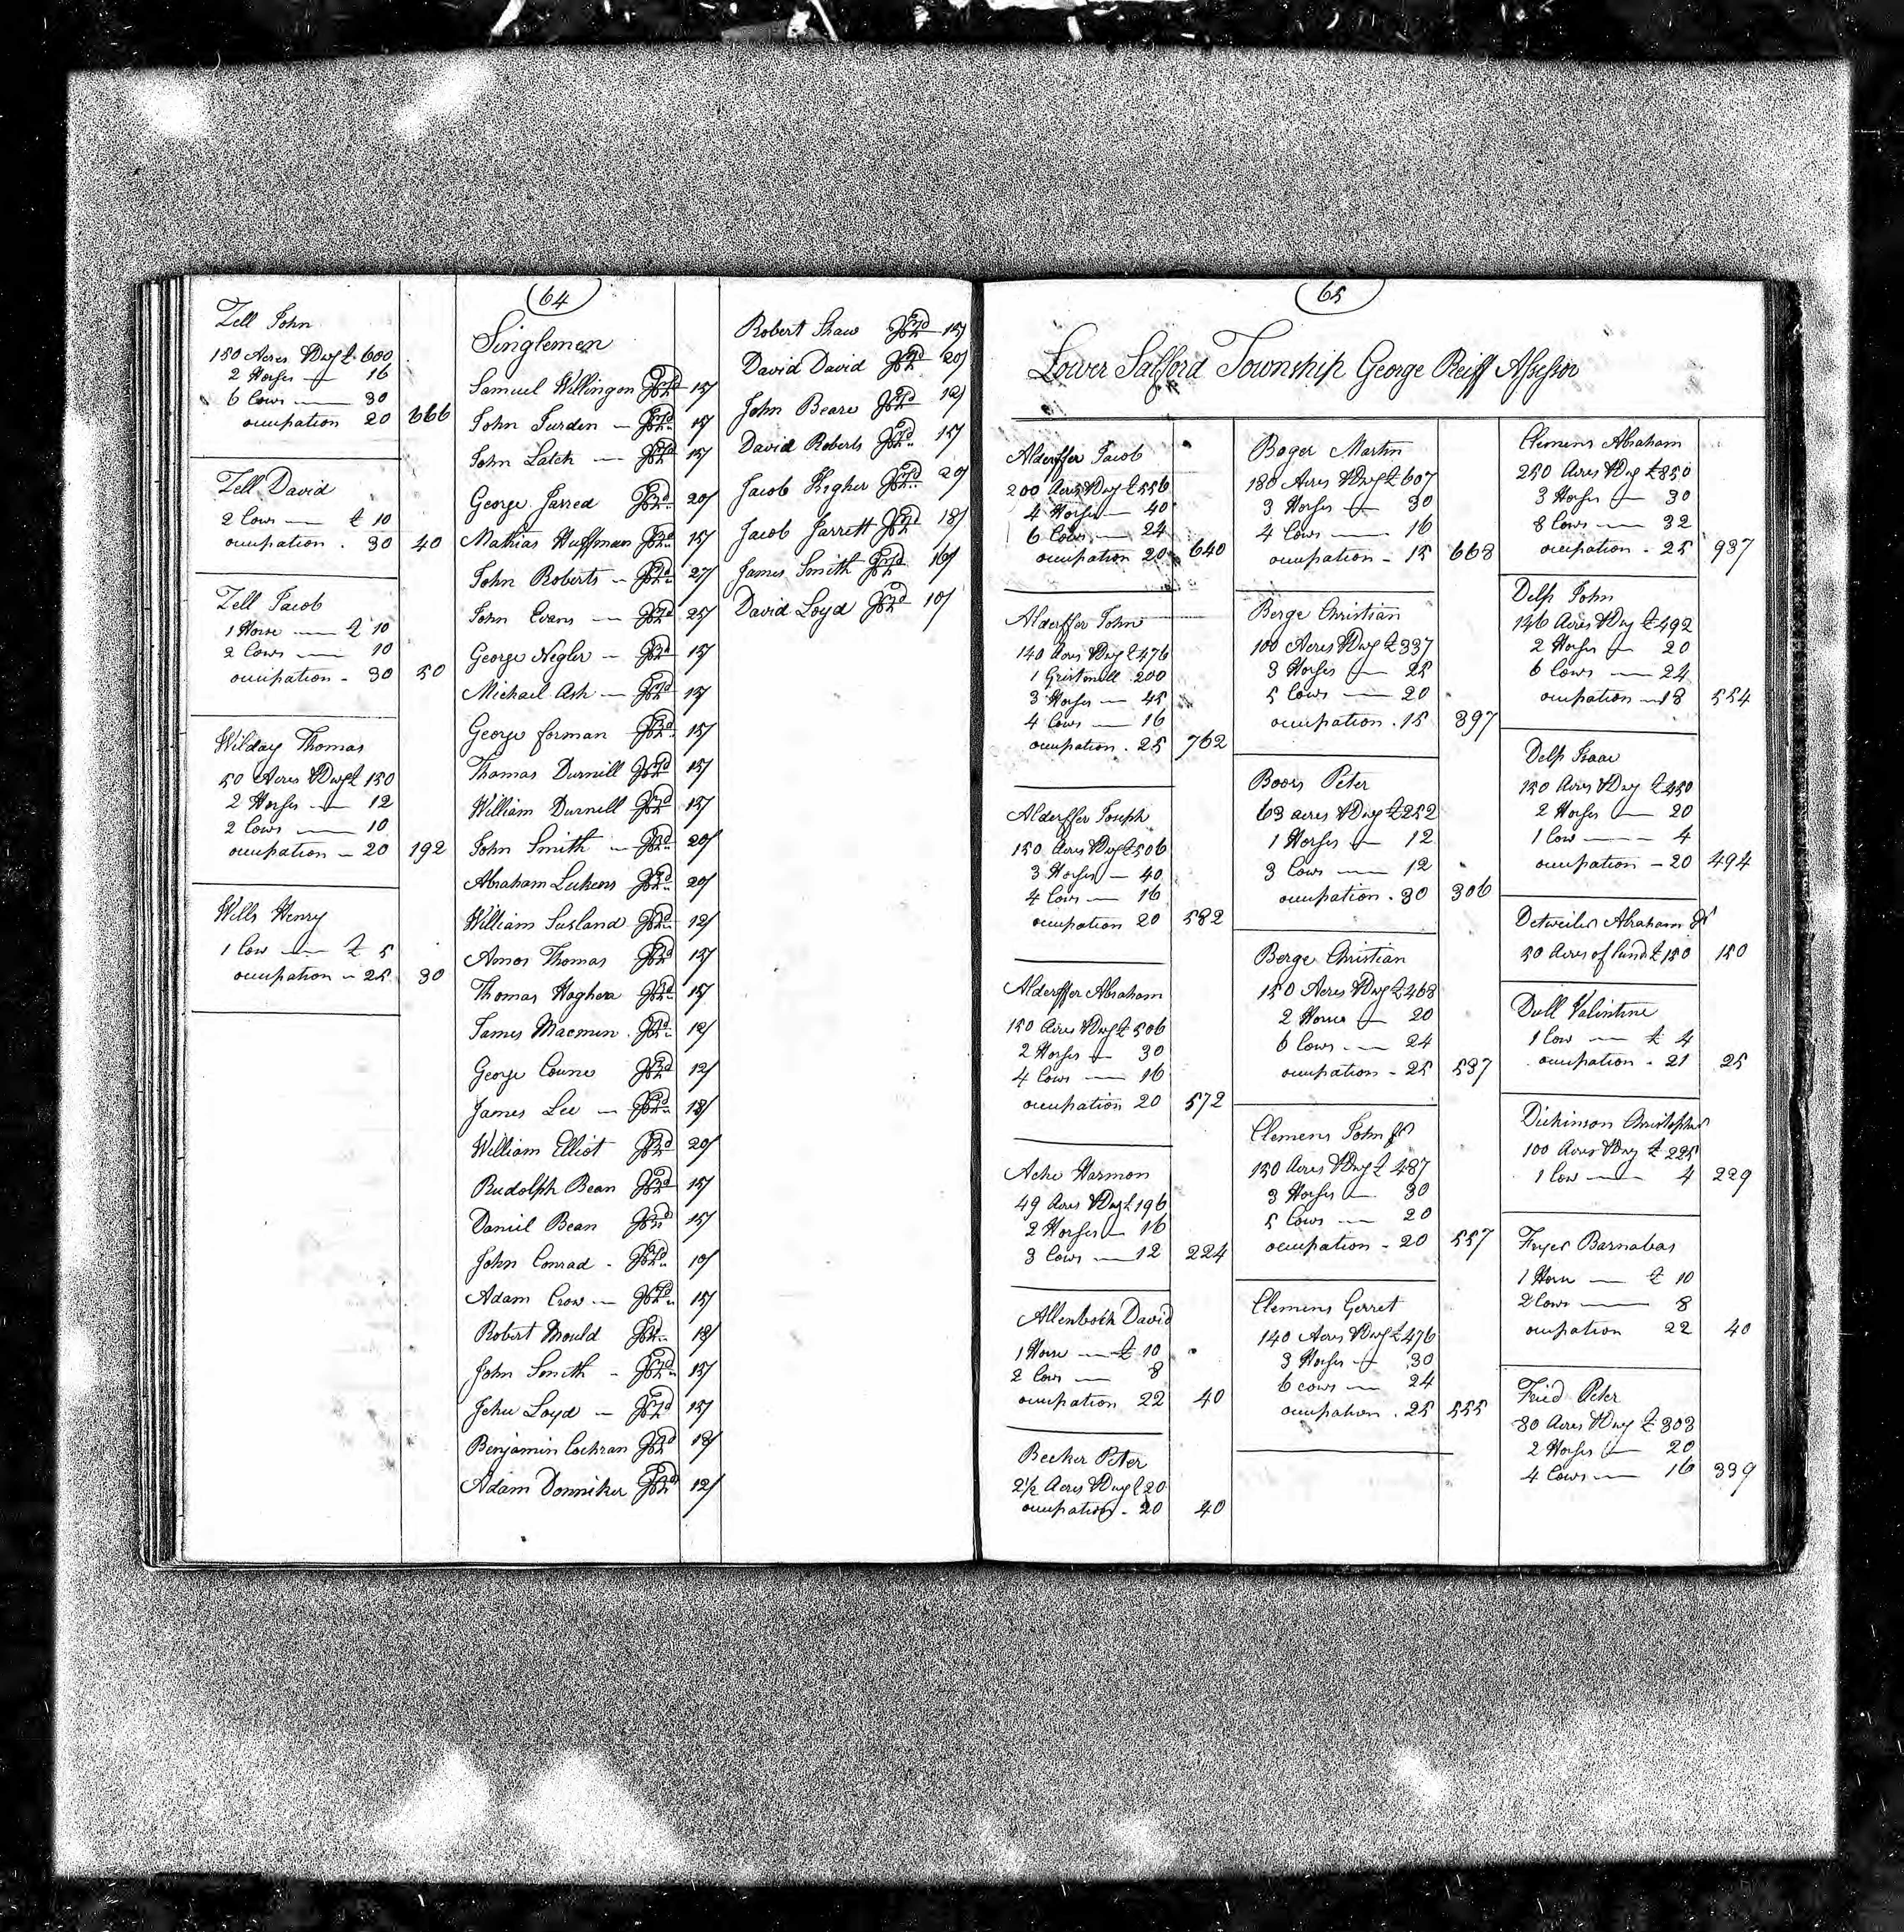 64
Zell John
150 Acres & Dwg £ 600
2 Horses 16
6 Cows 30
ocupation 20 666
Zell David
2 Cows £ 10
ocupation 30 40
Zell Jacob
1 Horse £ 10
2 Cows 10
ocupation 30 50
Wilday Thomas
50 Acres & Dwg £ 150
2 Horses 12
2 Cows 10
ocupation 20 192
Wills Henry
1 Cow £ 5
ocupation 25 30
Singlemen
Samuel Willingon 15/
John 15/
John Latch 15/
George Jarred 20/
Mathias Huffman 15/
John Roberts 27/
John Evans 25/
George Negler 15/
Michael Ash 15/
George forman 15/
Thomas Durnell 15/
William Durnell 15/
John Smith 20/
Abraham Lukens 20/
William 12/
Amos Thomas 15/
Thomas 15/
James 12/
George 12/
James Lee 18/
William Elliot 20/
Rudolph Bean 15/
Daniel Bean 15/
John Conrad 10/
Adam Crow 15/
Robert Mould 18/
John Smith 15/
Jehu Loyd 15/
Benjamin Cochran 18/
Adam Donniker 12/
Robert Shaw 15/
David David 20/
John Beare 12/
David Roberts 15/
Jacob 20/
Jacob Jarrett 18/
James Smith 16/
David Loyd 10/
65
Lower Salford Township George Reiff Assessor
Alderffer Jacob
200 Acres & Dwg £ 556
4 Horses 40
6 Cows 24
ocupation 20 640
Alderffer John
140 Acres & Dwg £ 476
1 Gristmill 200
3 Horses 45
4 Cows 16
ocupation 25 762
Alderffer Joseph
150 Acres & Dwg £ 506
3 Horses 40
4 Cows 16
ocupation 20 582
Alderffer Abraham
150 Acres & Dwg £ 506
2 Horses 30
4 Cows 16
ocupation 20 572
Ache Harmon
49 Acres & Dwg £ 196
2 Horses 16
3 Cows 12 224
Allenboch David
1 Horse £ 10
2 Cows 8
ocupation 22 40
Becker Peter
2½ Acres & Dwg £ 20
ocupation 20 40
Boger Martin
180 Acres & Dwg £ 607
3 Horses 30
4 Cows 16
ocupation 15 668
Berge Christian
100 Acres & Dwg £ 337
3 Horses 25
5 Cows 20
ocupation 15 397
Boors Peter
63 acres & Dwg £ 252
1 Horses 12
3 Cows 12
ocupation 30 306
Berge Christian
150 Acres & Dwg £ 468
2 Horses 20
6 Cows 24
ocupation 25 537
Clemens John Jr
150 Acres & Dwg £ 487
3 Horses 30
5 Cows 20
ocupation 20 557
Clemens Gerret
140 Acres & Dwg £ 476
3 Horses 30
6 cows 24
ocupation 25 555
Clemens Abraham
250 Acres & Dwg £ 850
3 Horses 30
8 Cows 32
ocupation 25 937
Delp John
146 Acres & Dwg £ 492
2 Horses 20
6 Cows 24
ocupation 18 554
Delp Isaac
150 Acres & Dwg £ 450
2 Horses 20
1 Cow 4
ocupation 20 494
Detweiler Abraham Jr
50 Acres of Land £ 150 150
Dull Valintine
1 Cow £ 4
ocupation 21 25
Dickinson Christopher
100 Acres & Dwg £ 225
1 Cow 4 229
Fryer Barnabas
1 Horse £ 10
2 Cows 8
ocupation 22 40
Fried Peter
80 Acres & Dwg £ 303
2 Horses 20
4 Cows 16 339